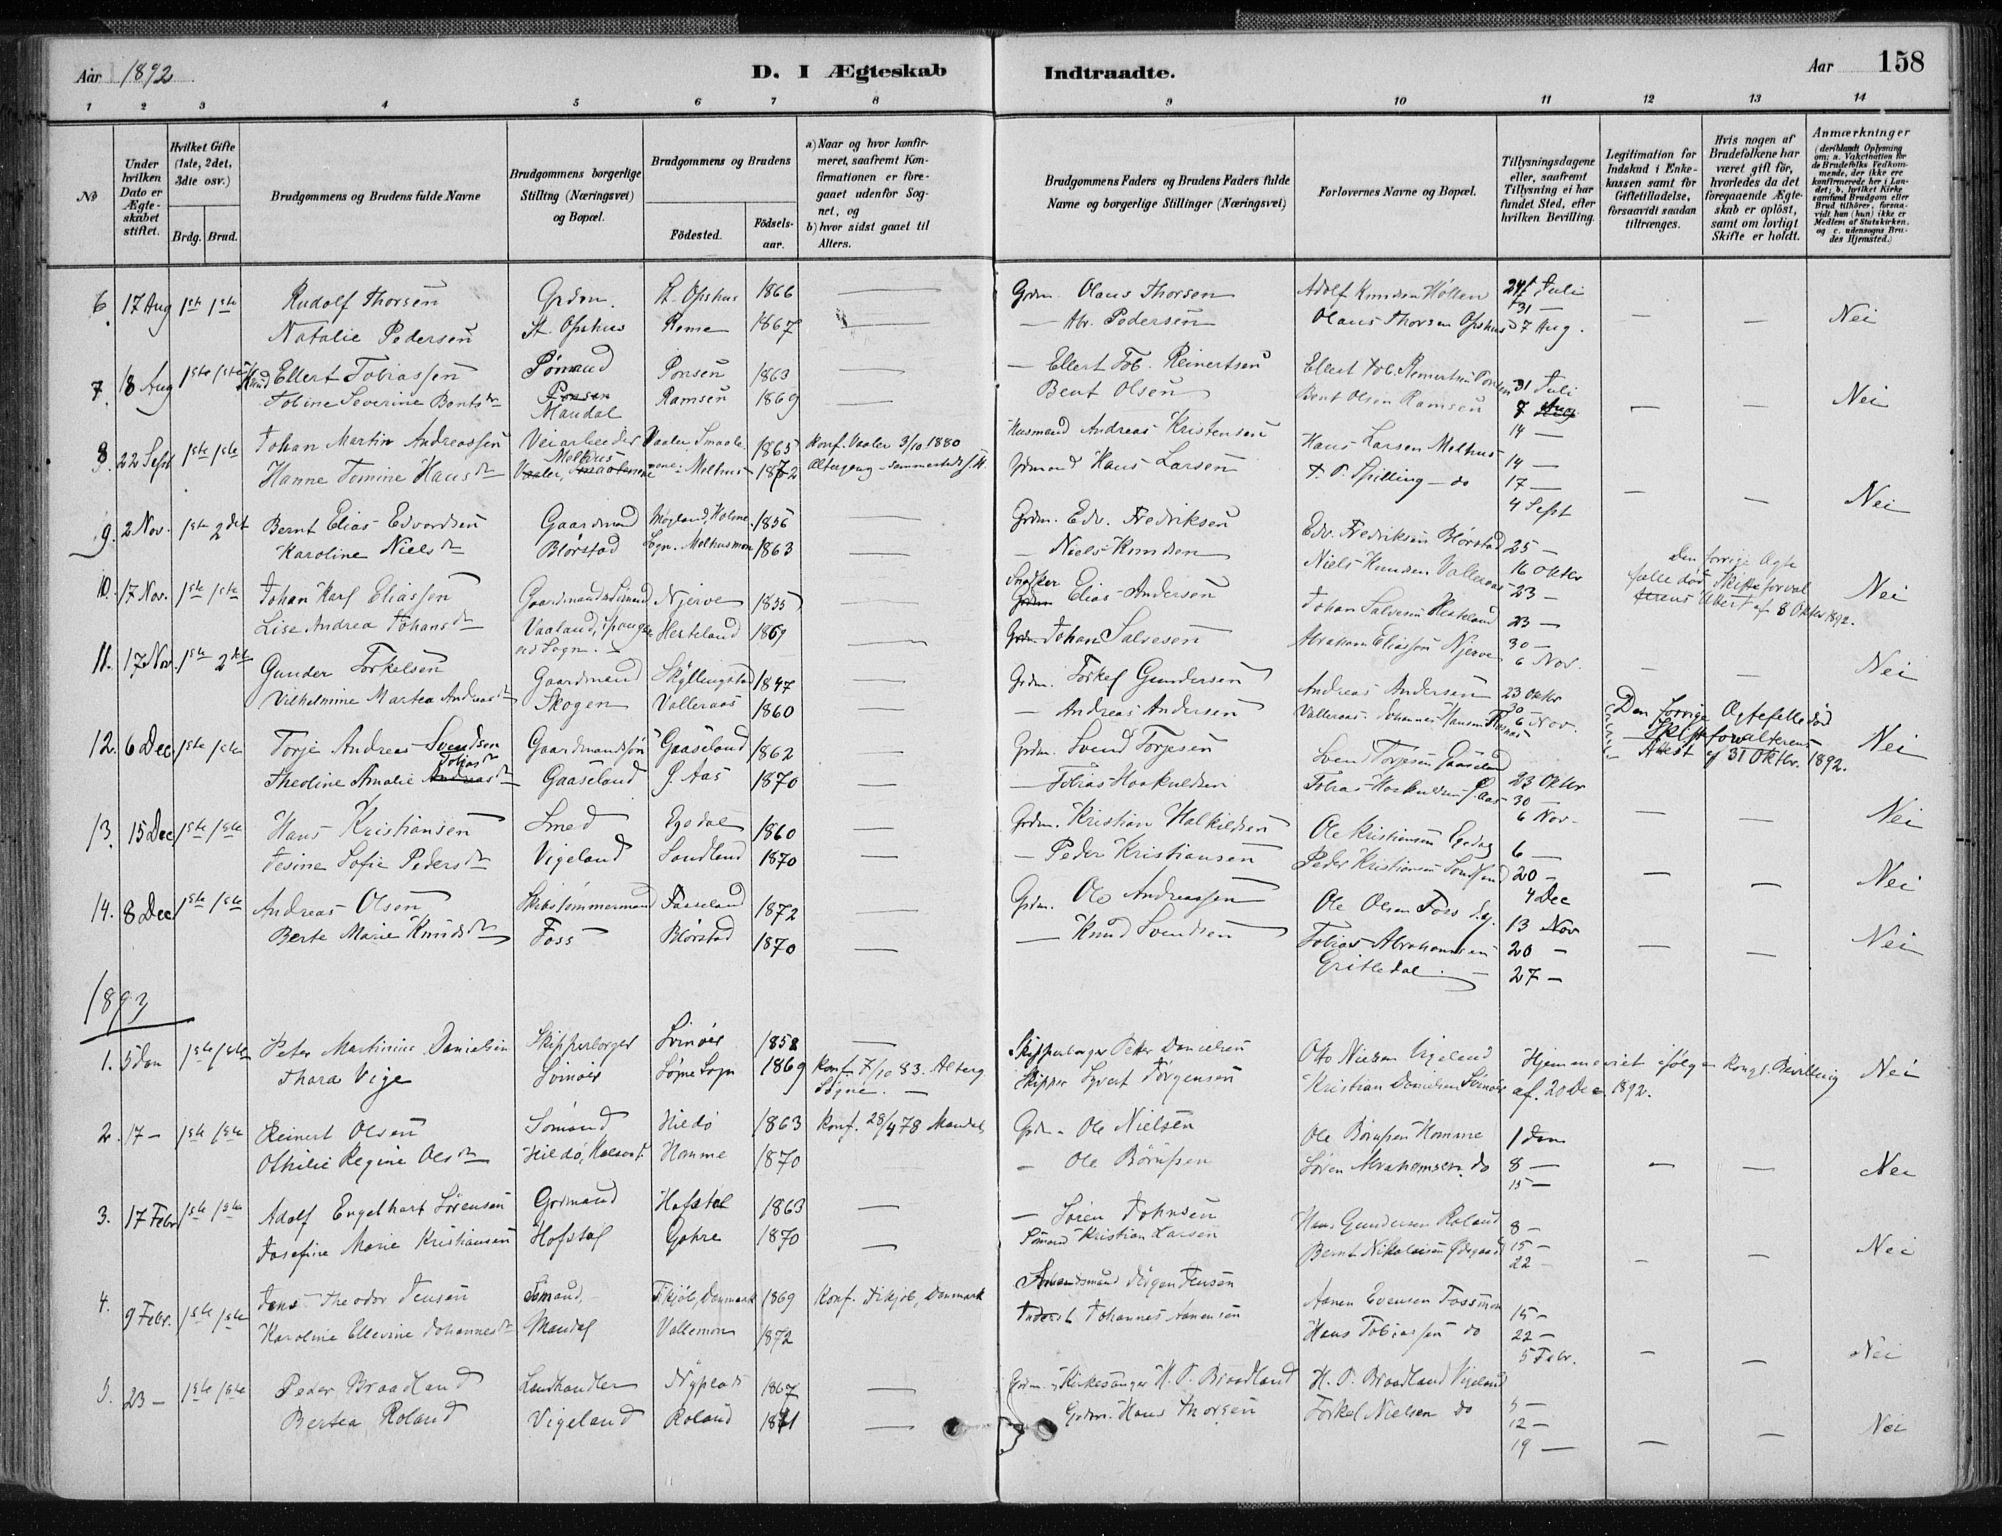 Aar 1892
D. I Ægteskab Indtraadte.
Aar 158
1 2 3 4 5 6 7 8 9 10 11 12 13 14
No
Under hvilken Dato er Ægteskabet stiftet.
Hvilket Gifte (1ste, 2det, 3die osv.)
Brdg. Brud.
Brudgommens og Brudens fulde Navne
Brudgommens borgerlige Stilling (Næringsvei) og Bopæl.
Brudgommens og Brudens
Födested. Födselsaar.
a) Naar og hvor konfirmeret, saafremt Konfirmationen er foregaaet udenfor Sognet, og
b) hvor sidst gaaet til Alters.
Brudgommens Faders og Brudens Faders fulde Navne og borgerlige Stillinger (Næringsvei)
Forlovernes Navne og Bopæl.
Tillysningsdagene eller, saafremt Tillysning ei har fundet Sted, efter hvilken Bevilling.
Legitimation for Indskud i Enkekassen samt for Giftetilladelse, forsaavidt saadan tiltrænges.
Hvis nogen af Brudefolkene har været gift för, hvorledes da det foregaaende Ægteskab er oplöst, samt om lovligt Skifte er holdt.
Anmærkninger (deriblandt Oplysning om: a. Vakcination för de Brudefolks Vedkommende, der ikke ere konfirmerede her i Landet; b. hvilket Kirkesamfund Brudgom eller Brud tilhörer, forsaavidt han (hun) ikke er Medlem af Statskirken, og c. udensogns Brudes Hjemsted.)
6. 17 Aug 1ste 1ste Rudolf Thorsen Grdm. St. Opshus 1866 — Grdm. Olaus Thorsen Adolf Knudsen Holten 24 Juli
Natalie Pedersen St. Opshus Rome 1867 — — Abr. Pedersen Olaus Thorsen Opshus 31 — 7 Aug. — — Nei
7. 18 Aug 1ste 1ste Ellert Tobiassen Sömand Ponsen 1863 — — Ellert Tob. Reinertsen Ellert Tob. Reinertsen Ponsen 31 Juli
Tobine Severine Bents dtr Ponsen Mandal Ramsen 1869 — Bent Olsen Bent Olsen Ramsen 7 Aug 14 — — — Nei
8. 22 Sept 1ste 1ste Johan Martin Andreassen Veiarbeider Vaaler Smaale 1865 Konf. Vaaler 3/10 1880 Husmand Andreas Kristensen Hans Larsen Melhus 14 —
Hanne Tomine Hans dtr Melhus Melhus 1872 Grdmand Hans Larsen T. P. Spilling — do 17 — 4 Sept — — Nei
9. 2 Nov. 1ste 2det Bernt Elias Edvardsen Gaardmand Møgland, Holme 1856 — Grdm. Edv. Fredriksen Edv. Fredriksen Blørstad 25 —
Karoline Niels dtr Blørstad Sogn. Melhusmon 1863 — — Niels Knudsen Niels Knudsen Valleraas 16 Oktbr 23 — Den forrige Ægtefælle død Skifteforvalterens Attest af 8 Oktbr 1892. Nei
10. 17 Nov. 1ste 1ste Johan Karl Eliassen Njerve 1855 — Snedker Elias Andersen Johan Salvesen Herteland 23 —
Lise Andrea Johans dtr Vaaland, Spangereid Sogn. Herteland 1869 — Grdm Johan Salvesen Abraham Eliassen Njerve 30 — 6 Nov. — — Nei
11. 17 Nov 1ste 2det Gunder Torkelsen Gaardmand Skyllingstad 1847 — Grdm. Torkel Gundersen Andreas Andersen 23 Oktbr
Vilhelmine Martea Andreas dtr Skogen Valleraas 1860 — — Andreas Andersen Valleraas. Johannes Hansen 30 6 Nov. Den forrige Ægtefælle død Skifteforvalterens Attest af 31 Oktbr. 1892. Nei
12. 6 Dec 1ste 1ste Torje Andreas Svendsen Gaardmandssøn Gaaseland 1862 — Grdm. Svend Torjesen Svend Torjesen Gaaseland
Theoline Amalie Tobias dtr Gaaseland Aas 1870 — — Tobias Haakuldsen Tobias Haakuldsen 23 Oktbr 30 — 6 Nov. — — Nei
13. 15 Dec 1ste 1ste Hans Kristiansen Smed Egedal 1860 — Grdm. Kristian Halkildsen Ole Kristiansen Egedal 6 —
Tesine Sofie Peders dtr Vigeland Sundland 1870 — — Peder Kristiansen Peder Kristiansen 20 — 4 Dec — — Nei
14. 8 Dec 1ste 1ste Andreas Olsen Skibstömmermand Faaseland 1872 — Grdm. Ole Andreassen Ole Olsen Foss 13 Nov
Berte Marie Knuds dtr Foss Blørstad 1870 — — Knud Svendsen Tobias Abrahamsen Gritledal. — 20 — 27 — — — Nei
1893
1. 5 Jan 1ste 1ste Peter Martinius Danielsen Skipperborger Svinöer 1858 — Skipperborger Peter Danielsen Otto Nielsen Vigeland Hjemmeviet ifölge Kongl. Bevilling
Thora Vige Svinöer Søgne Sogn 1869 Konf 7/10 83. Alterg Søgne. — Skipper Syvert Jørgensen Kristian Danielsen Svinöer af 20 Dec. 1892. Nei
2. 17 — 1ste 1ste Reinert Olsen Sömand Hildö 1863 Konf. 28/4 78 Mandal Grdm. Ole Nielsen Ole Børufsen Homme 1 Jan
Othilie Regine Ols dtr Hildö, Halsaa S. Homme 1870 — Ole Børufsen Søren Abrahamsen do 8 — 15 — — — Nei
3. 17 Febr 1ste 1ste Adolf Engelhart Sörensen Grdmand Hofstøl 1863 — — Søren Johnsen Hans Gundersen Roland 8 —
Josefine Marie Kristiansen Hofstøl Gahre 1870 — Sømand Kristian Larsen Bernt Nikolaisen Ødegaard 15 — 22 — — — Nei
4. 9 Febr. 1ste 1ste Jens Theodor Jensen Sømand, Tikjöb, Danmark 1869 Konf. Tikjöb, Danmark Jörgen Jensen Aanen Evensen Fossmon 15 —
Karoline Ellevine Johannes dtr Mandal Vallemon 1872 Johannes Aanensen Hans Tobiassen do 22 — 5 Febr. — — Nei
5. 23 — 1ste 1ste Peder Braadland Landhandler Nyplads 1867 — Grdm. og Kirkesanger H. P. Braadland H. P. Braadland Vigeland 5 —
Bertea Roland Vigeland Roland 1871 — Grdm. Hans Thorsen Torkel Nielsen do 12 — 19 — — — Nei